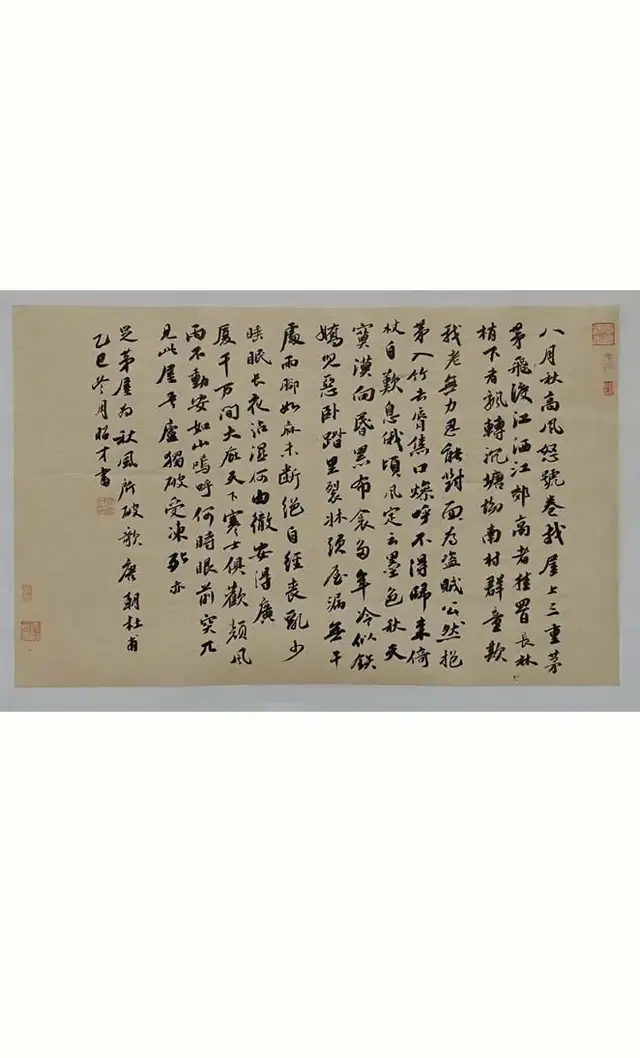 八月秋高風怒號卷我屋上三重茅
茅飛渡江洒江郊高者挂罥長林
梢下者飄轉沉塘坳南村群童欺
我老無力忍能對面為盜賊公然抱
茅入竹去脣焦口燥呼不得歸來倚
杖自歎息俄頃風定云墨色秋天
寞漠向昏黑布衾多年冷似鐵
嬌兒惡卧踏里裂牀頭屋漏無干
處雨腳如麻未斷絕自經喪亂少
睡眠長夜沾濕何由徹安得廣
厦千万間大庇天下寒士俱歡顏風
雨不動安如山嗚呼何時眼前突兀
見此屋吾廬獨破受凍死亦
足茅屋為秋風所破歌 唐朝杜甫
乙巳冬月昭才書